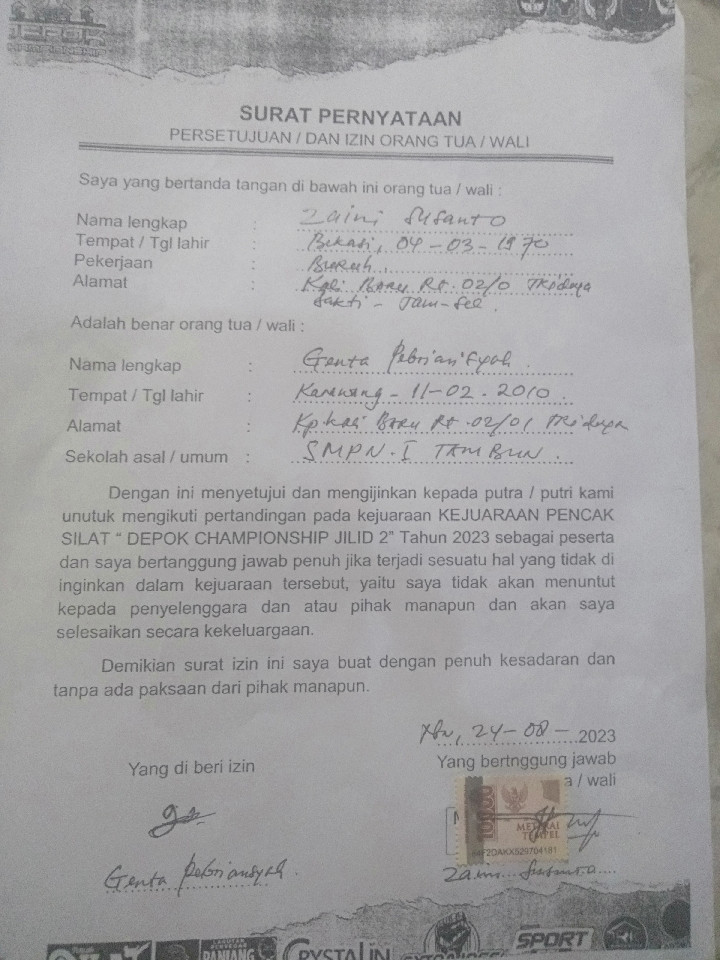 DEPOK
SURAT PERNYATAAN
PERSETUJUAN / DAN IZIN ORANG TUA / WALI
Saya yang bertanda tangan di bawah ini orang tua / wali :
Nama lengkap : Zaini Susanto
Tempat / Tgl lahir : Bekasi, 04-03-1970
Pekerjaan : Buruh.
Alamat : Kpli Baru Rt.02/0 Tridaya
Sakti - Tam-Sel.
Adalah benar orang tua / wali :
Nama lengkap : Genta Pebriansyah.
Tempat / Tgl lahir : Karawang - 11-02.2010.
Alamat : Kp kali Baru Rt.02/01 Tridaya
Sekolah asal / umum : SMPN.I TAMBUN.
Dengan ini menyetujui dan mengijinkan kepada putra / putri kami
unutuk mengikuti pertandingan pada kejuaraan KEJUARAAN PENCAK
SILAT “ DEPOK CHAMPIONSHIP JILID 2” Tahun 2023 sebagai peserta
dan saya bertanggung jawab penuh jika terjadi sesuatu hal yang tidak di
inginkan dalam kejuaraan tersebut, yaitu saya tidak akan menuntut
kepada penyelenggara dan atau pihak manapun dan akan saya
selesaikan secara kekeluargaan.
Demikian surat izin ini saya buat dengan penuh kesadaran dan
tanpa ada paksaan dari pihak manapun.
24-08-2023
Yang di beri izin
Yang bertnggung jawab
a / wali
10000
METERAI
TEMPEL
Genta Pebriansyah.
Zaini Susanto
PANJANG
CRYSTALIN
SPORT